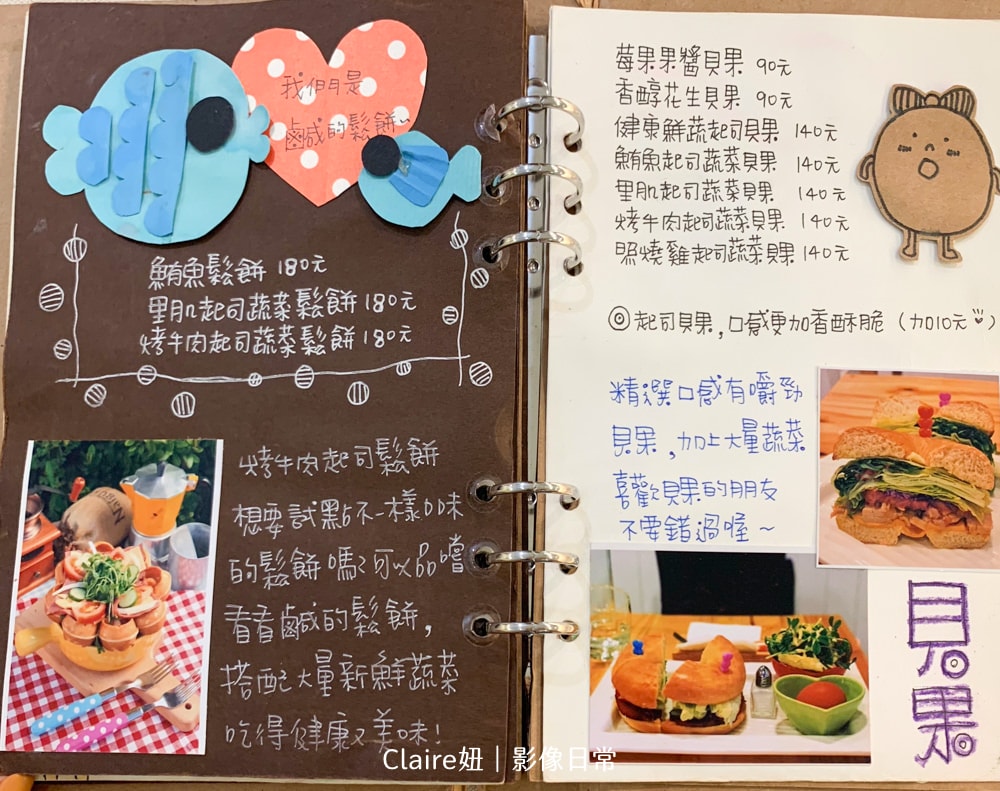 我們是
鹹鹹的鬆餅~
鮪魚鬆餅 180元
里肌起司蔬菜鬆餅 180元
烤牛肉起司蔬菜鬆餅 180元
烤牛肉起司鬆餅
想要試點不一樣口味
的鬆餅嗎?可以品嚐
看看鹹的鬆餅,
搭配大量新鮮蔬菜
吃得健康又美味!
莓果果醬貝果 90元
香醇花生貝果 90元
健康鮮蔬起司貝果 140元
鮪魚起司蔬菜貝果 140元
里肌起司蔬菜貝果 140元
烤牛肉起司蔬菜貝果 140元
照燒雞起司蔬菜貝果 140元
◎起司貝果,口感更加香酥脆(加10元)
精選口感有嚼勁
貝果,加上大量蔬菜
喜歡貝果的朋友
不要錯過喔~
貝果
Claire妞|影像日常